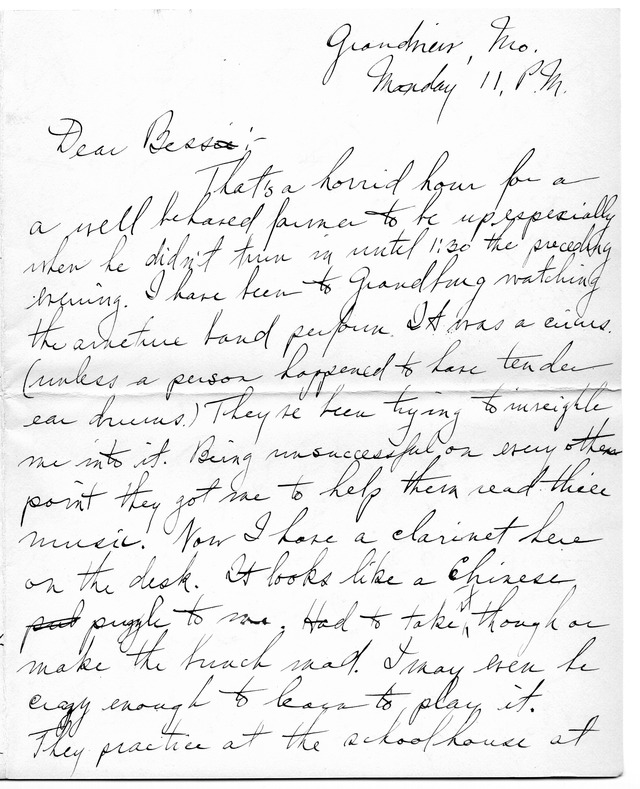 Grandview, Mo.
Monday 11, P.M.
Dear Bessie:-
That's a horrid hour for a
a well behaved farmer to be up, especially
when he didn't turn in until 1:30 the preceding
evening. I have been to Grandburg watching
the amature band perform. It was a circus.
(unless a person happened to have tender
ear drums.) They've been trying to inveighle
me into it. Being unsuccessful on every other
point they got me to help them read thier
music. Now I have a clarinet here
on the desk. It looks like a Chinese
put puzzle to me. Had to take it though or
make the bunch mad. I may even be
crazy enough to learn to play it.
They practice at the schoolhouse at